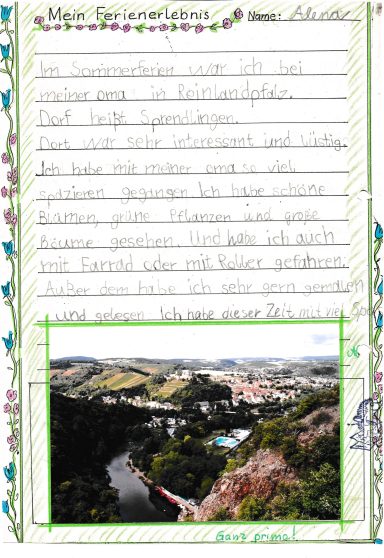 Mein Ferienerlebnis Name: Alena
Im Sommerferien war ich bei
meiner oma in Reinlandpfalz.
Dorf heißt Sprendlingen.
Dort war sehr interessant und lüstig.
Ich habe mit meiner oma so viel
spazieren gegangen. Ich habe schöne
Blumen, grüne Pflanzen und große
Bäume gesehen. Und habe ich auch
mit Farrad oder mit Roller gefahren.
Außer dem habe ich sehr gern gemalen
und gelesen. Ich habe dieser Zeit mit viel Spa
Ganz prima!